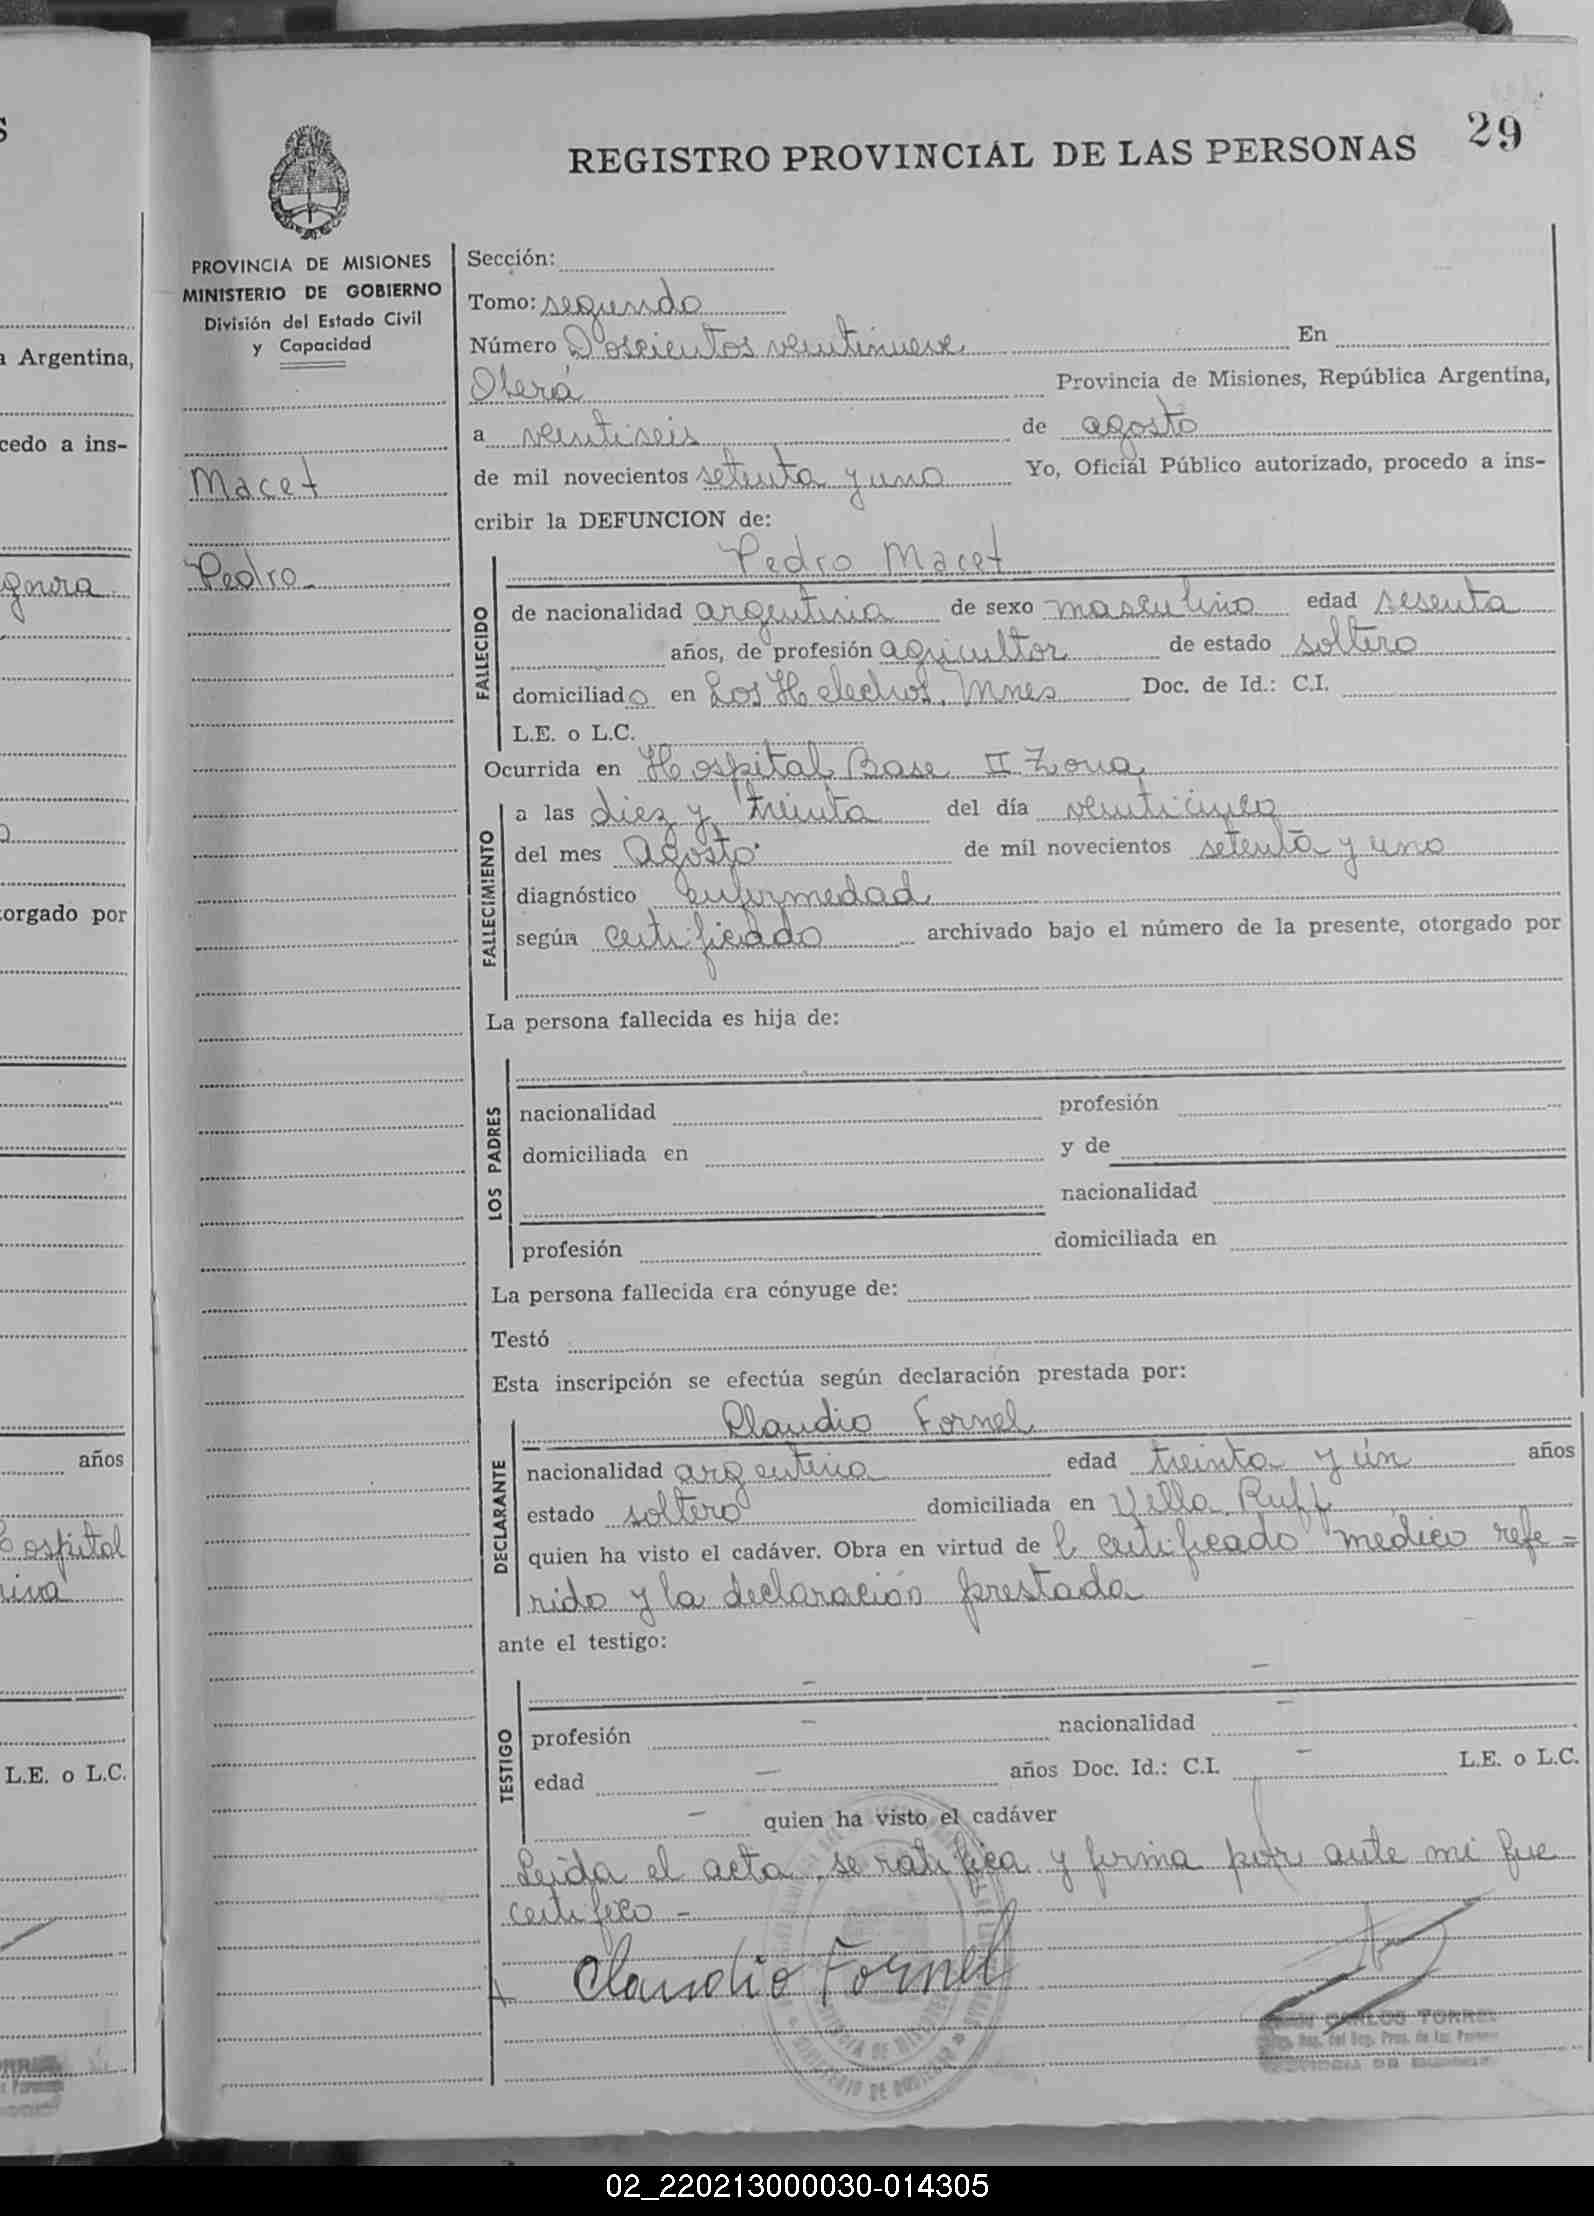 REGISTRO PROVINCIAL DE LAS PERSONAS 29
PROVINCIA DE MISIONES
MINISTERIO DE GOBIERNO
División del Estado Civil
y Capacidad
Macet
Pedro
Sección:
Tomo: segundo
Número Doscientos veintinueve En
Oberá Provincia de Misiones, República Argentina,
a veintiseis de agosto
de mil novecientos setenta y uno Yo, Oficial Público autorizado, procedo a ins-
cribir la DEFUNCION de:
FALLECIDO
Pedro Macet
de nacionalidad argentina de sexo masculino edad sesenta
años, de profesión agricultor de estado soltero
domiciliado en Los Helechos, Mnes Doc. de Id.: C.I.
L.E. o L.C.
Ocurrida en Hospital Base II Zona
FALLECIMIENTO
a las diez y treinta del día veinticinco
del mes Agosto de mil novecientos setenta y uno
diagnóstico enfermedad
según certificado archivado bajo el número de la presente, otorgado por
La persona fallecida es hija de:
LOS PADRES
nacionalidad profesión
domiciliada en y de
nacionalidad
profesión domiciliada en
La persona fallecida era cónyuge de:
Testó
Esta inscripción se efectúa según declaración prestada por:
DECLARANTE
Claudio Fornel
nacionalidad argentina edad treinta y ún años
estado soltero domiciliada en Villa Ruff
quien ha visto el cadáver. Obra en virtud de l certificado médico refe=
rido y la declaración prestada
ante el testigo:
TESTIGO
profesión - nacionalidad -
edad - años Doc. Id.: C.I. - L.E. o L.C.
- quien ha visto el cadáver
Leída el acta, se ratifica y firma por ante mi que
certifico -
Claudio Fornel
CARLOS TORRES
a Argentina,
cedo a ins-
torgado por
años
ospital
L.E. o L.C.
02_220213000030-014305